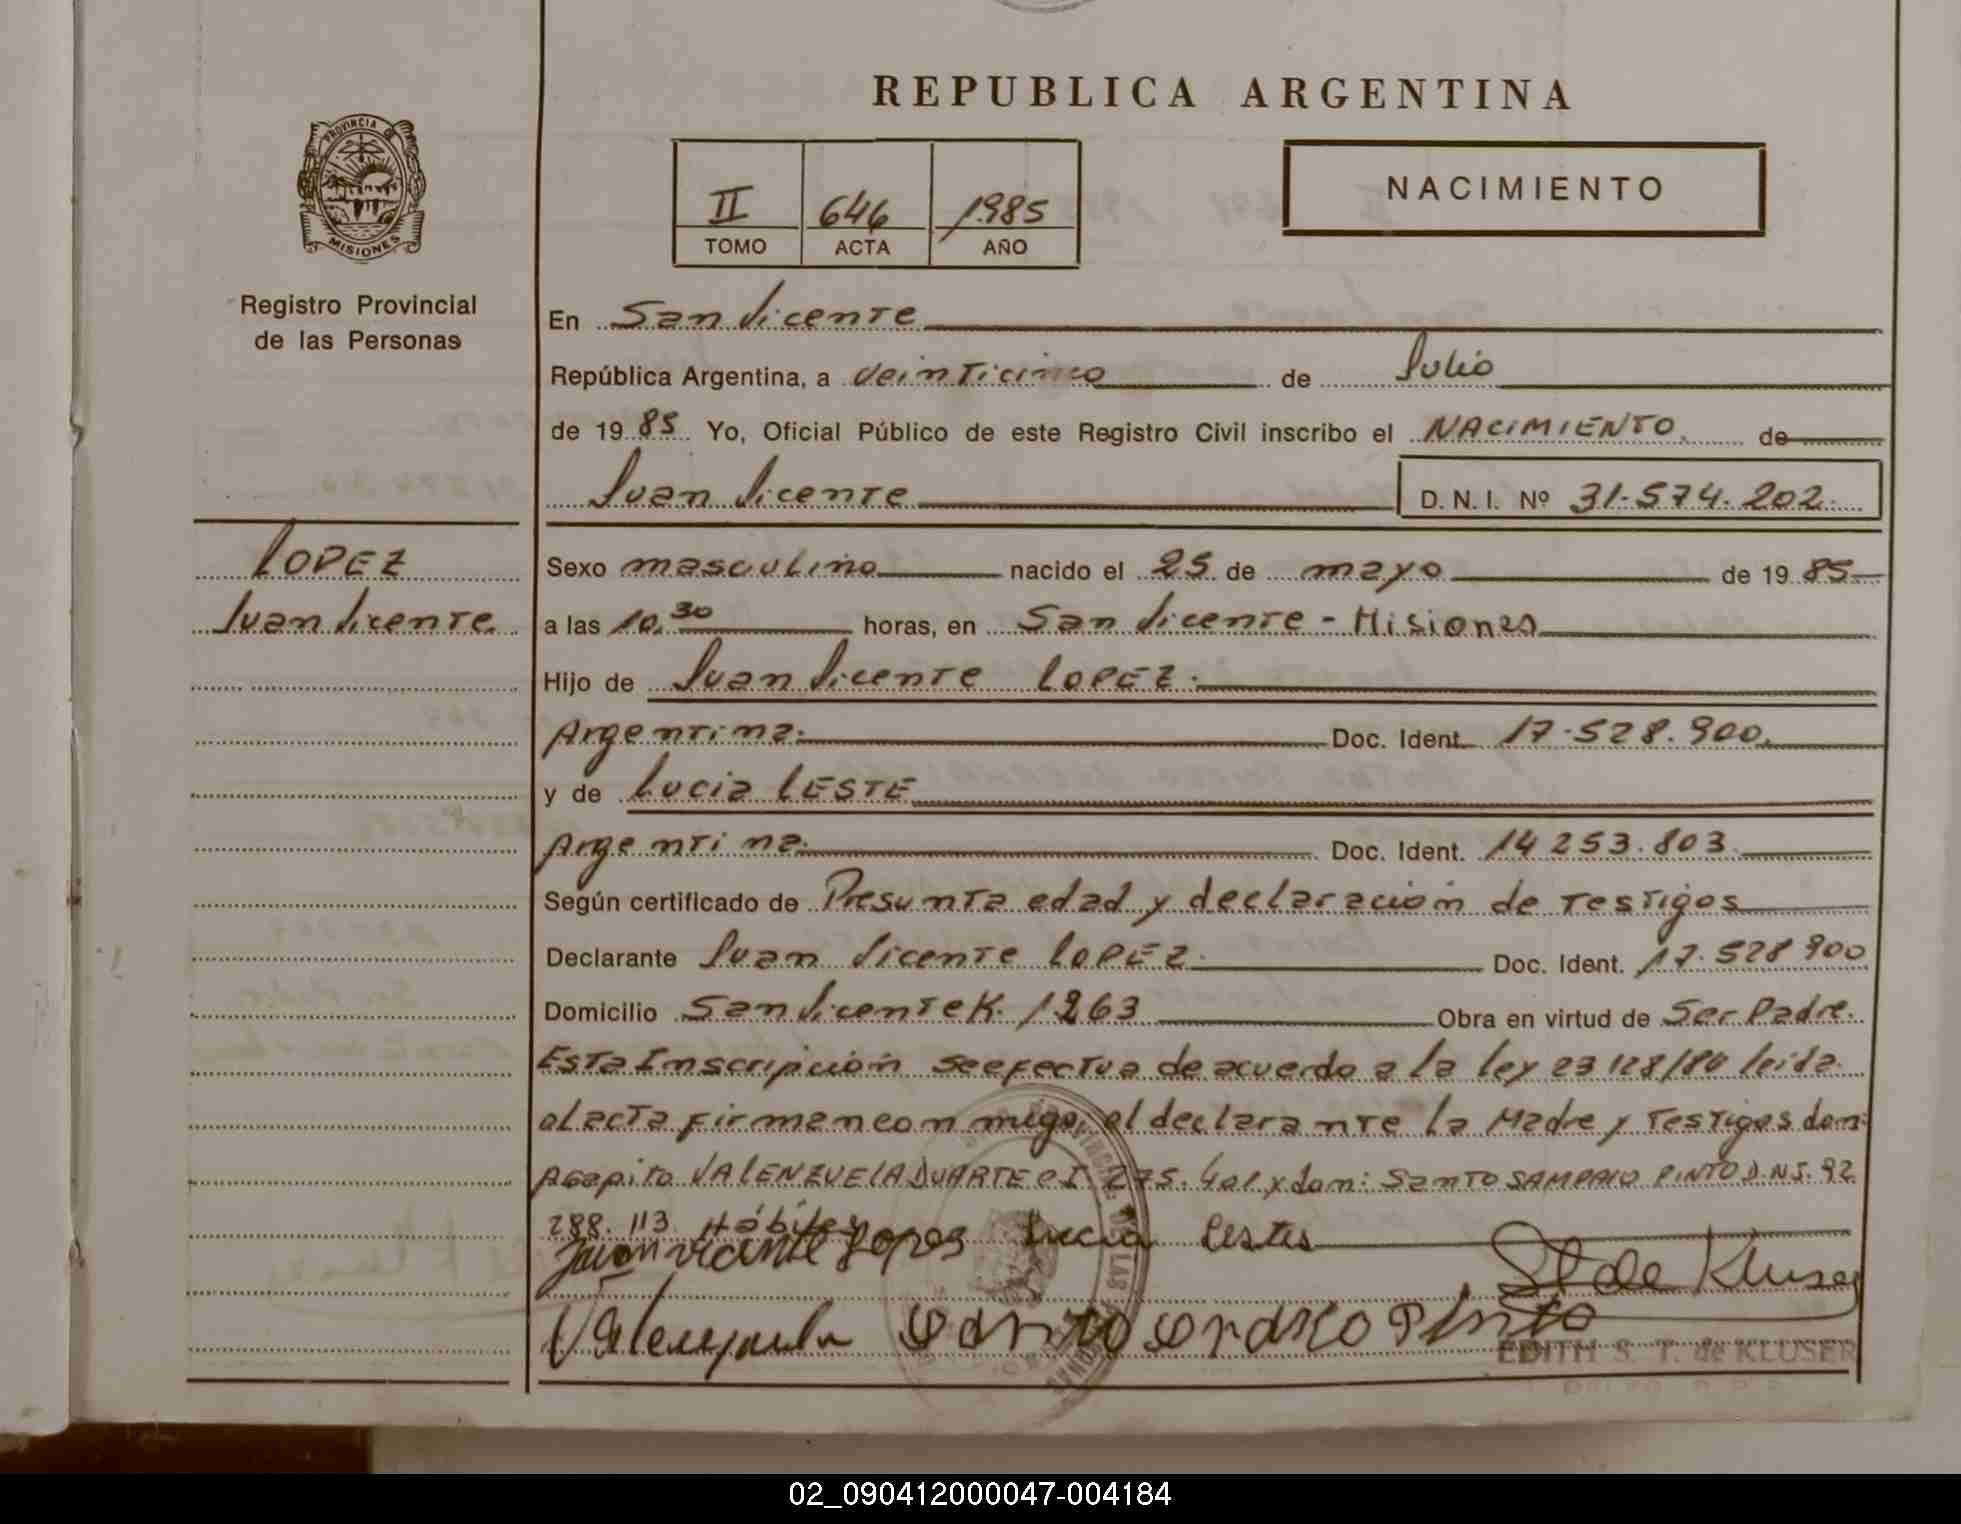 REPUBLICA ARGENTINA
PROVINCIA DE
MISIONES
Registro Provincial
de las Personas
II 646 1985
TOMO ACTA AÑO
NACIMIENTO
En San Vicente
República Argentina, a veinticinco de Julio
de 19 85 Yo, Oficial Público de este Registro Civil inscribo el NACIMIENTO de
Juan Vicente D. N. I. Nº 31.574.202.
LOPEZ
Juan Vicente.
Sexo masculino nacido el 25 de mayo de 19 85
a las 10,30 horas, en San Vicente - Misiones
Hijo de Juan Vicente LOPEZ.
Argentina. Doc. Ident. 17.528.900.
y de Lucia LESTE
Argentina. Doc. Ident. 14 253.803.
Según certificado de Presunta edad y declaración de Testigos
Declarante Juan Vicente LOPEZ. Doc. Ident. 17.528 900
Domicilio San Vicente K. 1263 Obra en virtud de Ser Padre.
Esta Inscripción se efectua de acuerdo a la ley 23 128/84 leida
el acta firman con migo, el declarante la Madre y Testigos don:
Agapito VALENZUELA DUARTE C I 275. 401 y don: Santo SAMPAIO PINTO D.N.I. 92
288. 113. Hábiles
Juan vicante Lopes Lucia Lestes
St de Kluser
Valenzuela Santo Pinto
EDITH S. T. de KLUSER
02_090412000047-004184